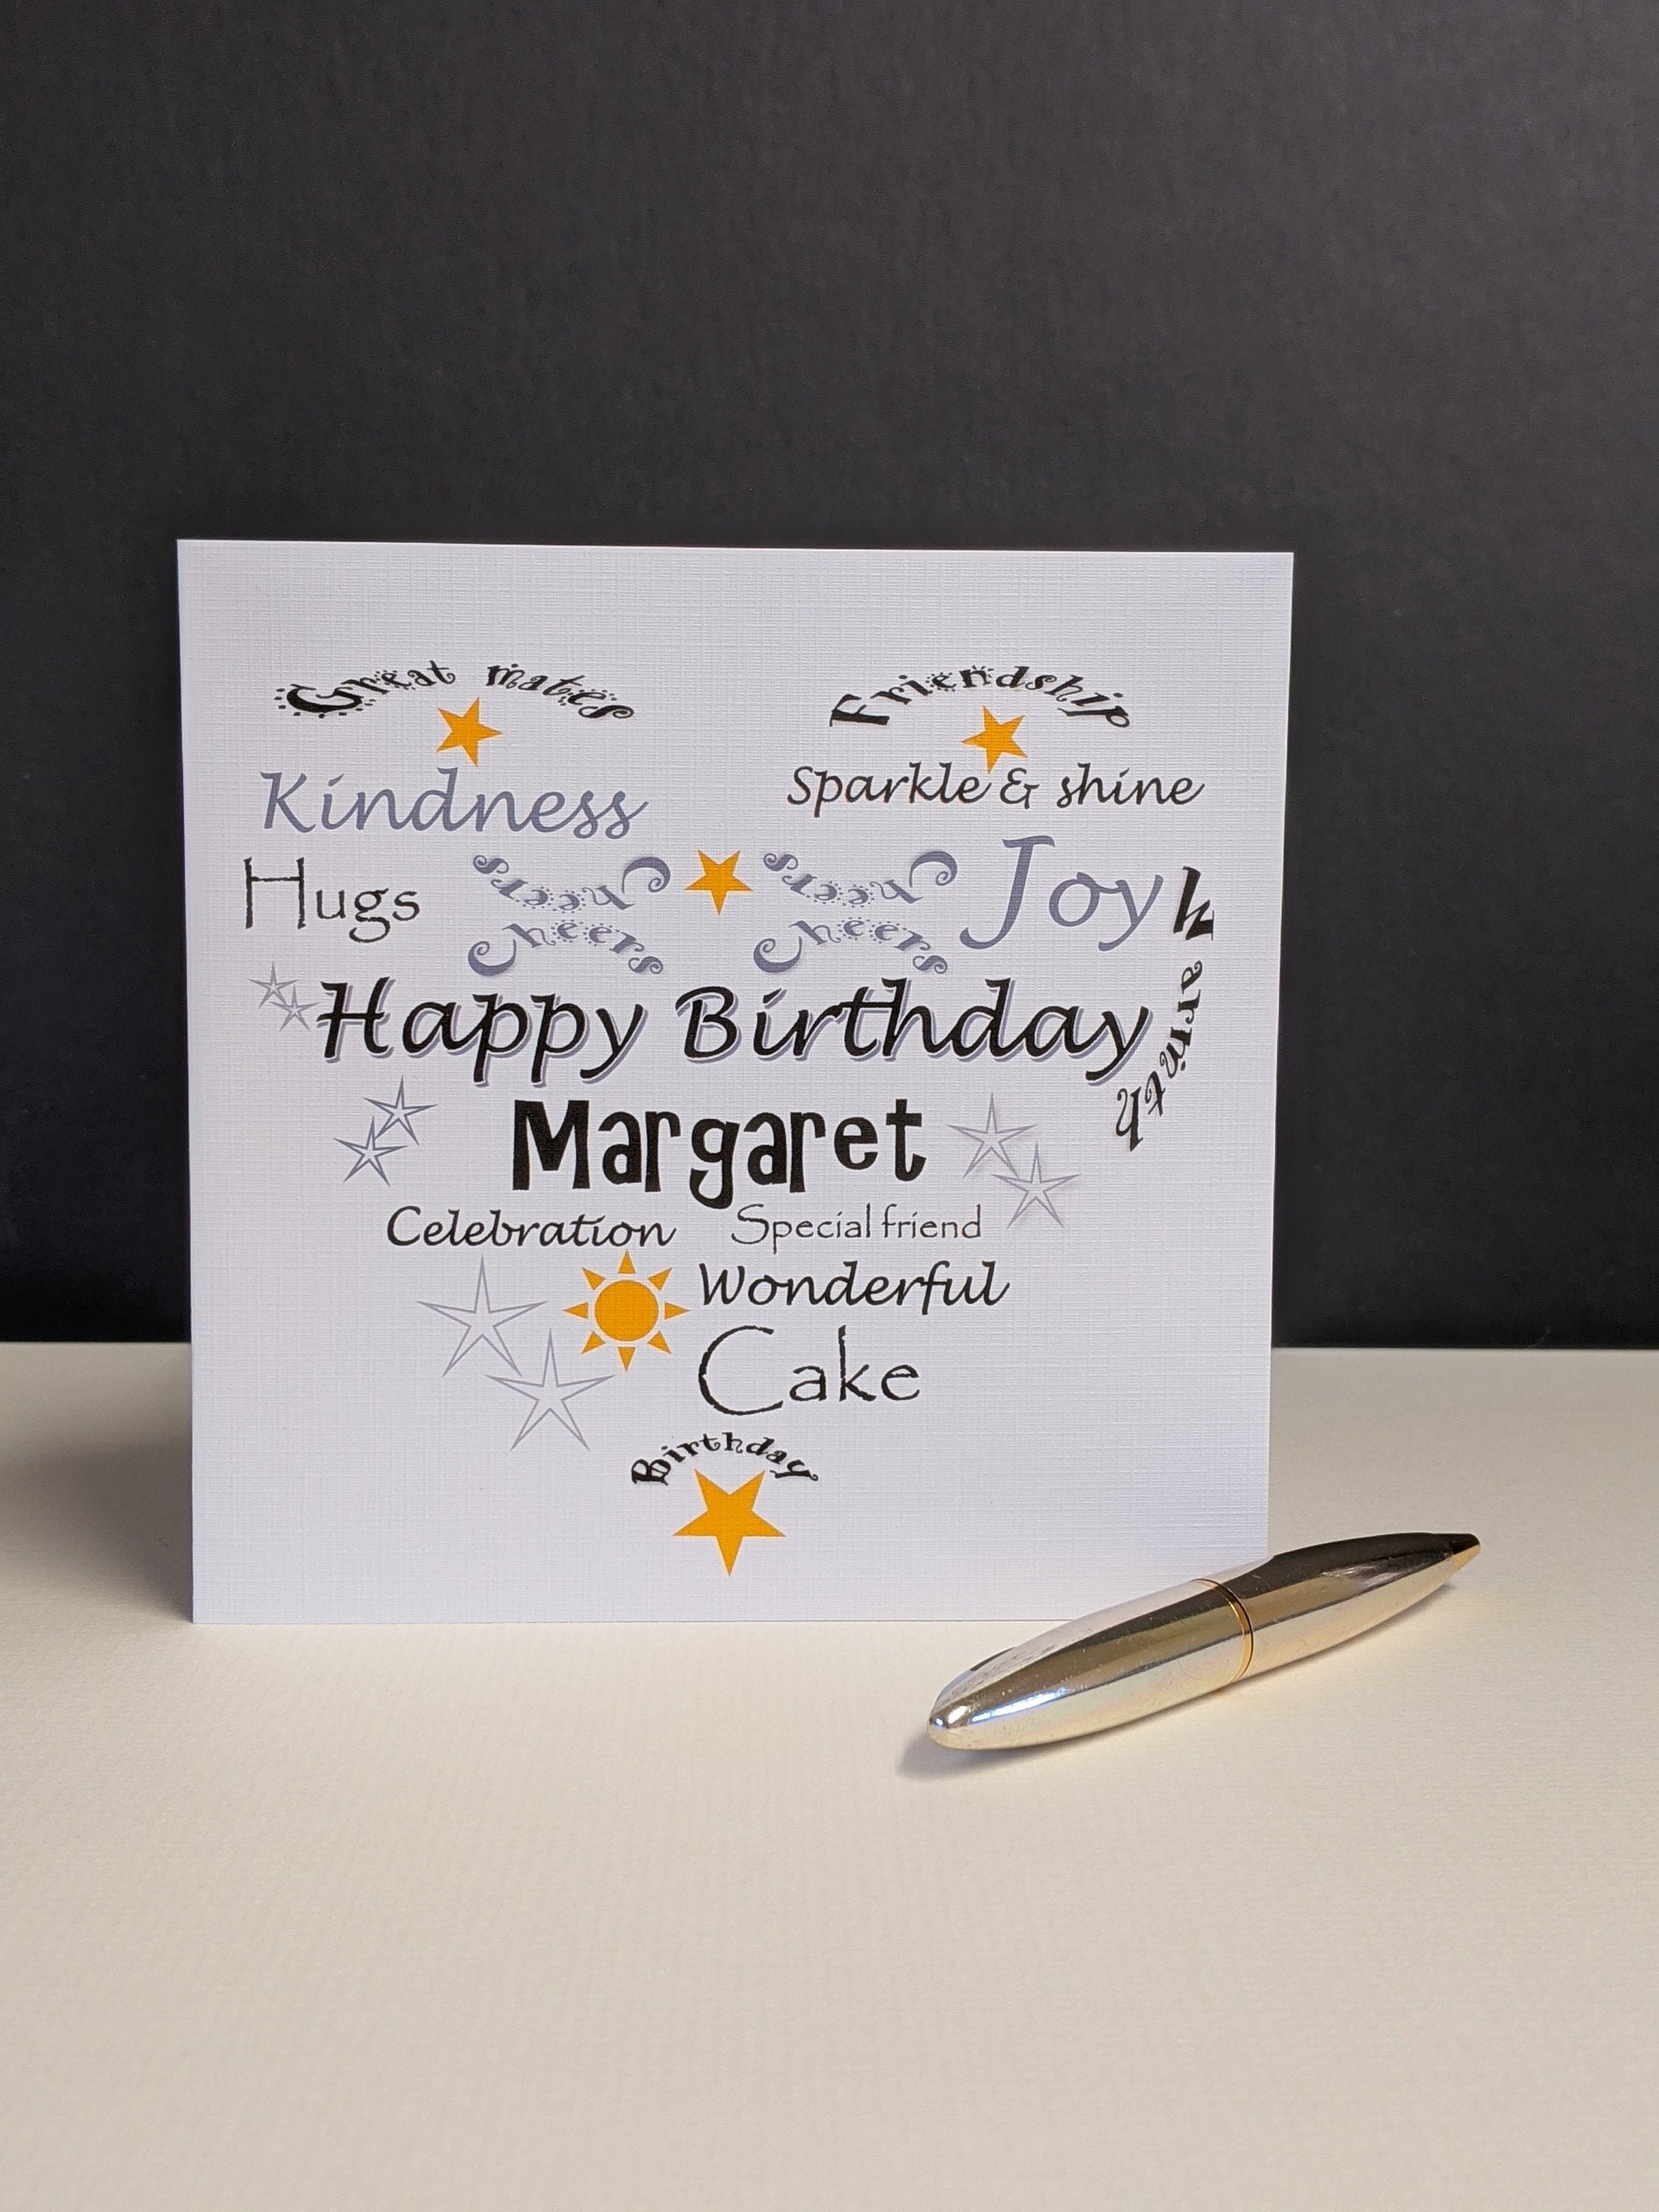 Great mates
Friendship
Kindness
Sparkle & shine
Hugs
Cheers
Cheers
Joy
Cheers
Cheers
Warmth
Happy Birthday
Margaret
Celebration
Special friend
Wonderful
Cake
Birthday